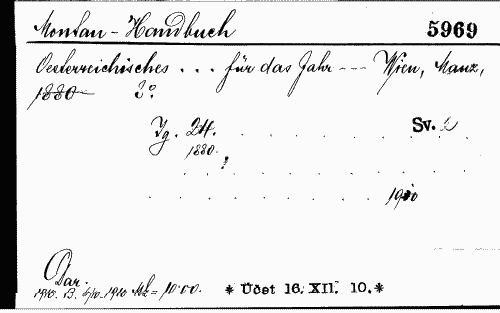 Montan-Handbuch 5969
Oesterreichisches . . . für das Jahr --- Wien, Manz,
1880 8°.
Jg. 24. Sv.
1880.
1910
Dar.
1910. 10.00. * Účet 16. XII. 10. *